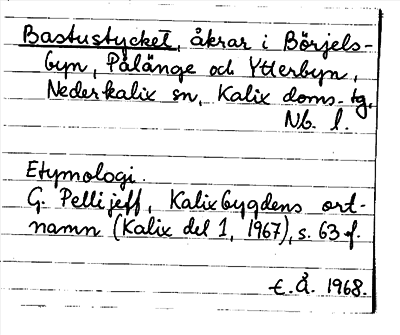 Bastustycket, åkrar i Börjels-
byn, Pålänge och Ytterbyn,
Nederkalix sn, Kalix doms. tg,
Nb. l.
Etymologi.
G. Pellijeff, Kalixbygdens ort-
namn (Kalix del 1, 1967), s. 63 f.
E. Å. 1968.